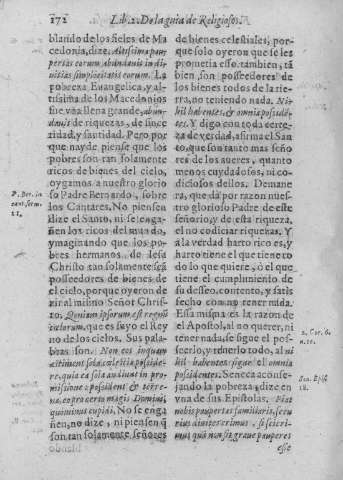 172 Lib. 2. De la guia de Religiosos.
blando de los fieles de Ma
cedonia, dize. Altissima pau
pertas eorum abundauit in di
uitias simplicitatis eorum. La
pobreza Euangelica, y al-
tissima de los Macedonios
fue vna llena grande, abun
dancia de riquezas, de since
zidad, y santidad. Pero por
que nayde piense que los
pobres son tan solamente
ricos de bienes del cielo,
oygamos a nuestro glorio
so Padre Bernardo, sobre
los Cantares. No piensen
dize el Santo, ni se enga-
ñen los ricos del mundo,
ymaginando que los po-
bres hermanos de Iesu
Christo tan solamente señ
possedores de bienes de
el cielo, porque oyeron de
zir al mismo Señor Chris-
to. Quoniam ipsorum est regnū
cælorum, que es suyo el Rey
no de los cielos. Sus pala-
bras son. Non eos inquam
æstiment sola cælestia posside-
re, quia ea sola audiunt in pro-
missione: possident & terre-
na,
quominus cupidi. No se enga
ñen, no dize, ni piensen q̃
son tan solamente señores
P. Ber. in
cant. serm.
21.
de bienes celestiales, por-
que solo oyeron que se les
prometia esso. tambien, tã
bien son possedores de
los bienes todos de la tie-
rra, no teniendo nada. Ni-
hil habentes, & omnia possidē
tes. Y digo con toda certe-
za de verdad, afirma el San
to, que son tanto mas señc
res de los aueres, quanto
menos cuydadosos, ni co-
diciosos dellos. De mane
ra, que da por razon nues-
tro glorioso Padre de este
señorio, y de esta riqueza,
el no codiciar riquezas. Y
a la verdad harto rico es, y
harto tiene el que tiene to
do lo que quiere, o el que
tiene el cumplimiento de
su desseo, contento, y satis
fecho con no tener nada.
Essa misma es la razon de
el Apostol, al no querer, ni
tener nada, se sigue el pos-
seerlo, y tenerlo todo, al ni
hil habentes sigue el omnia
possidentes. Seneca aconse-
jando la pobreza, dize en
vna de sus Epistolas. Fiat
nobis paupertas familiaris, secu
rius diuites erimus, si scieri-
mus quā non sit graue pauperes
esse
2. Cor. 6.
n. 10.
Sen. Epist.
18.